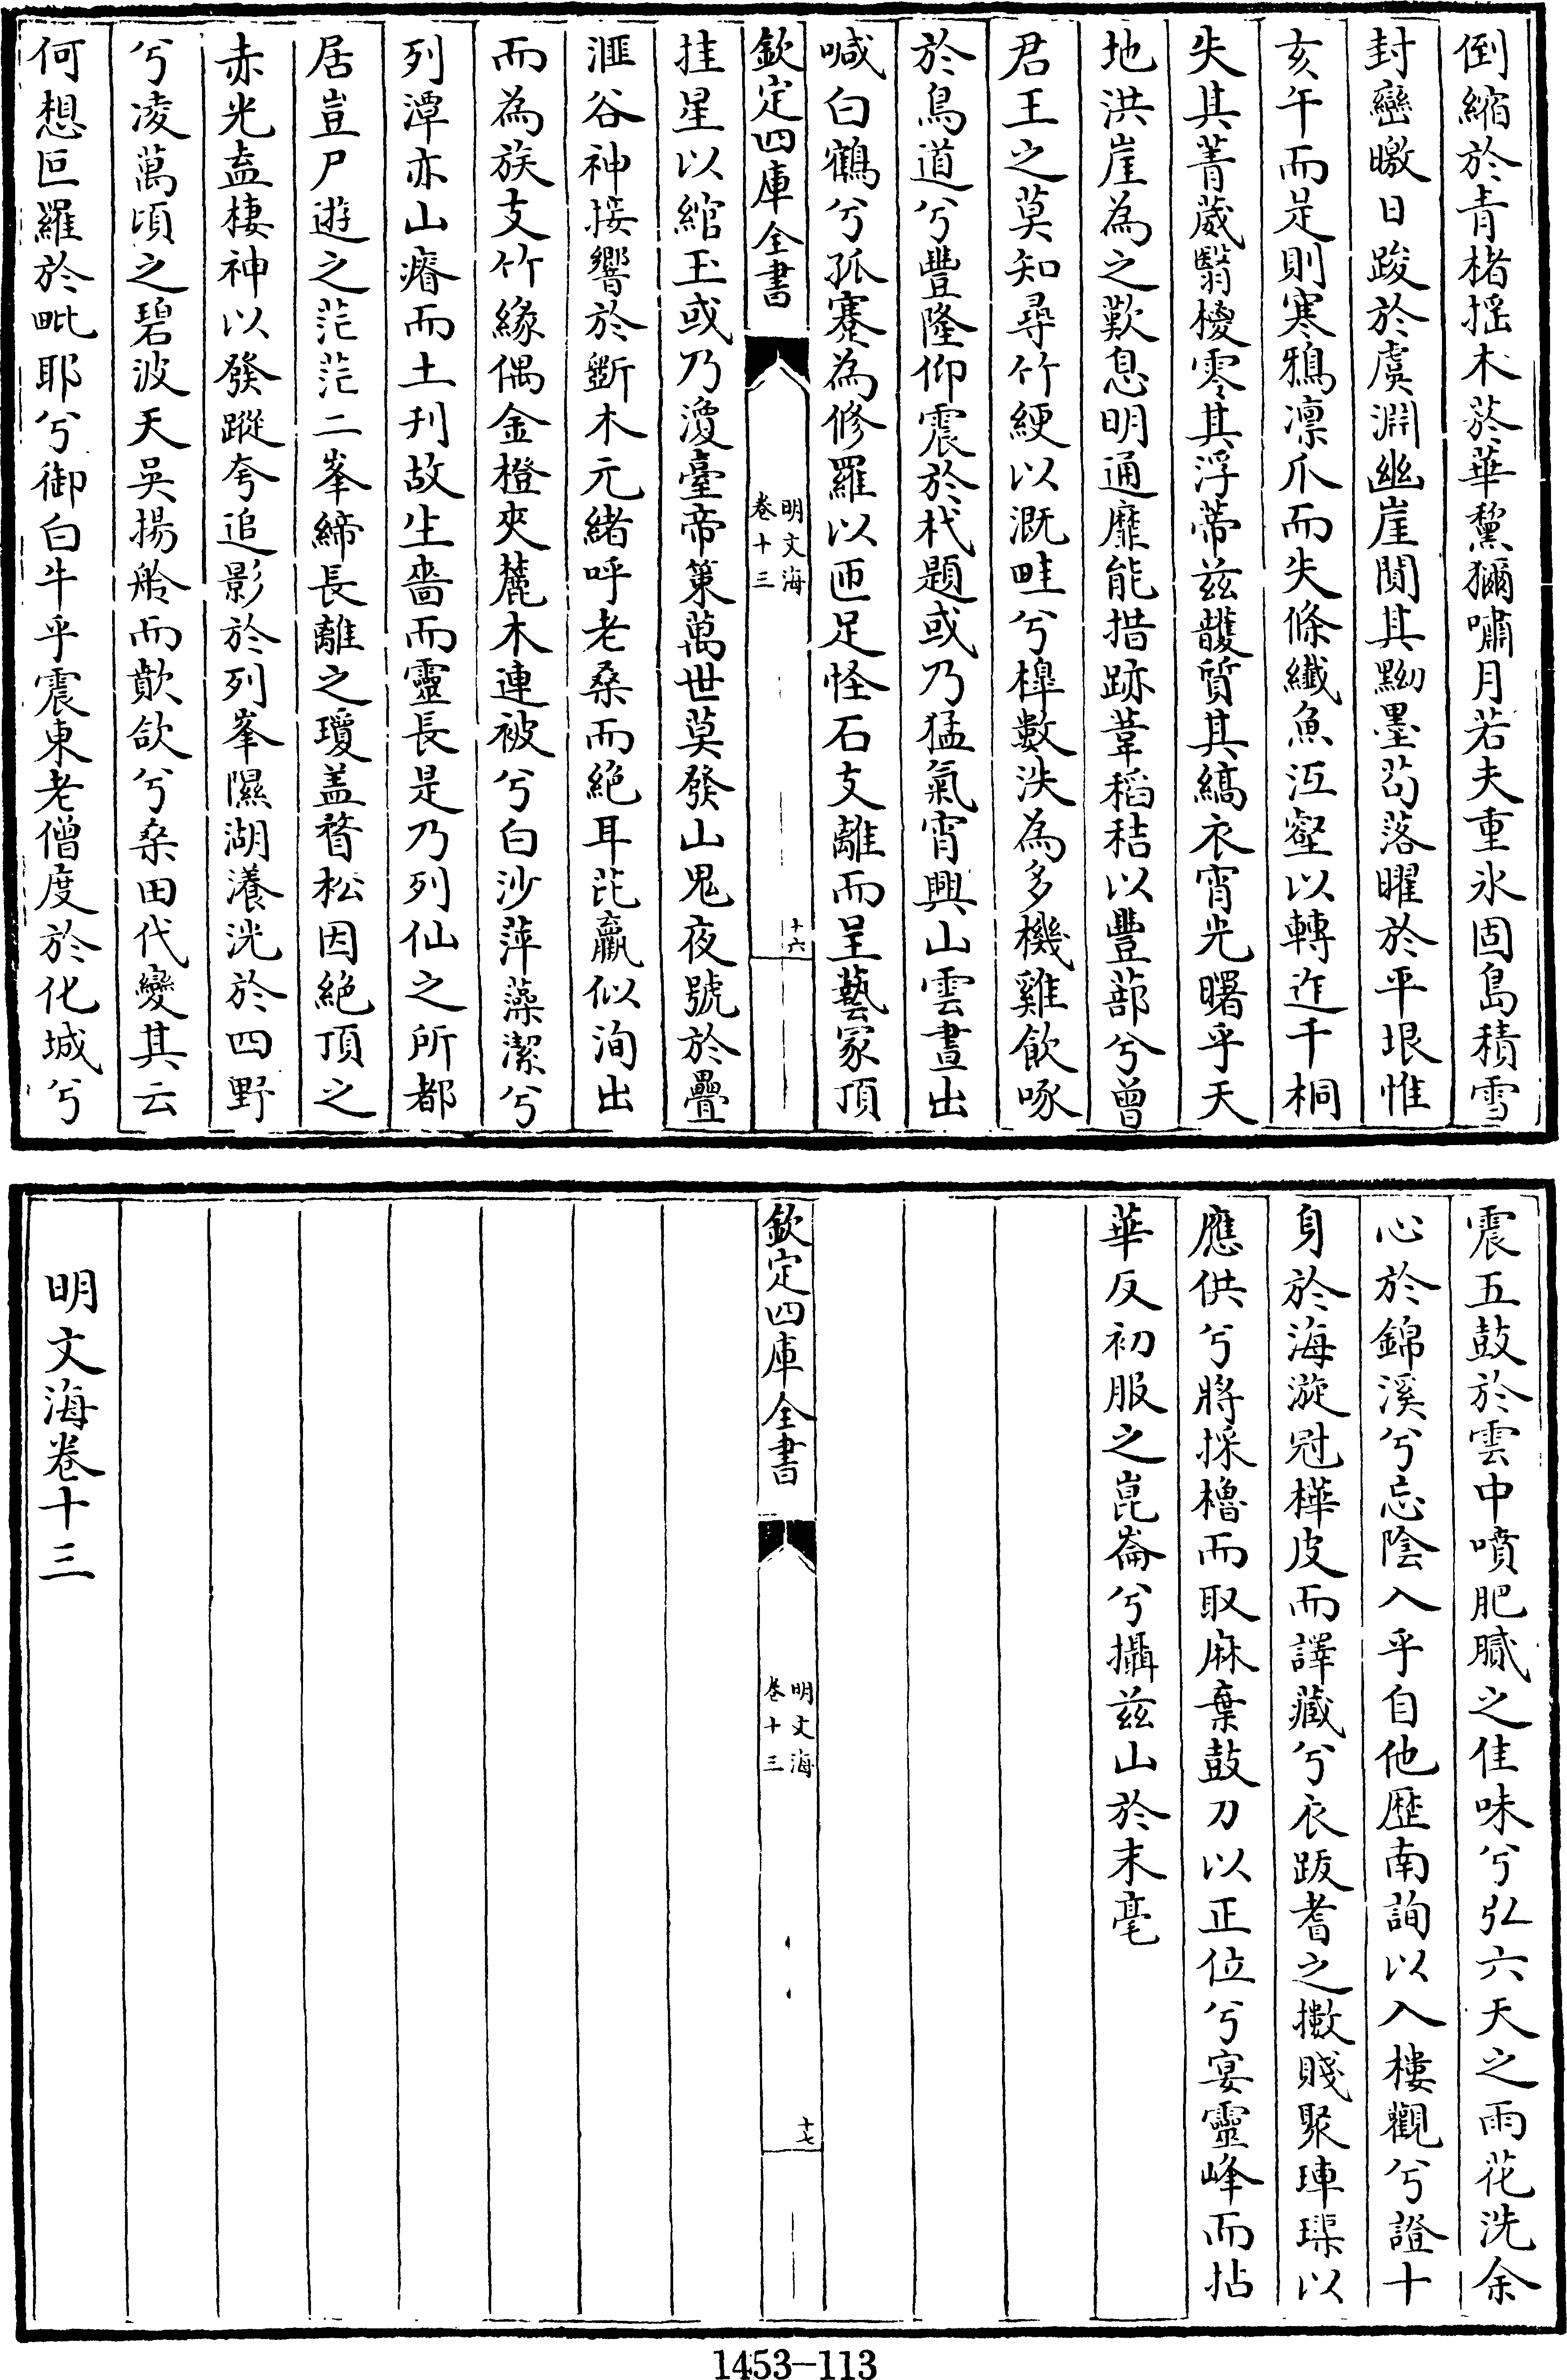 倒縮於青楮揺木菸華黧獮嘯月若夫重氷固島積雪
封巒暾日踆於虞淵幽崖閴其黝墨苟落曜於平垠惟
亥午而足則寒鴉凛爪而失條纖魚沍壑以轉迮千桐
失其菁葳翳檟零其浮蔕兹韄質其縞衣宵光曙乎天
地洪崖為之歎息明通靡能措跡葦稻秸以豐蔀兮曾
君王之莫知尋竹綆以溉畦兮槹數泆為多機雞飲啄
於鳥道兮豐隆仰震於杙題或乃猛氣宵興山雲晝出
喊白鶴兮孤騫為修羅以匝足怪石支離而呈藝冢頂
欽定四庫全書
明文海
卷十三
十六
挂星以綰玉或乃瓊臺帝菓萬世莫發山鬼夜號於疊
滙谷神接響於斷木元緒呼老桑而絶耳芘蠃似洵出
而為族支竹緣偶金橙夾麓木連被兮白沙萍藻潔兮
列潭亦山瘠而土刋故生嗇而靈長是乃列仙之所都
居豈尸遊之茫茫二峯締長離之瓊盖瞀松因絶頂之
赤光盍棲神以發蹤夸追影於列峯隰湖瀁洸於四野
兮凌萬頃之碧波天吳揚舲而歕欱兮桑田代變其云
何想叵羅於毗耶兮御白牛乎震東老僧度於化城兮
震五鼓於雲中噴肥膩之佳味兮弘六天之雨花洗余
心於錦溪兮忘陰入乎自他歷南詢以入樓觀兮證十
身於海漩冠樺皮而譯藏兮衣跋耆之撽賤聚硨磲以
應供兮將採櫓而取麻棄鼓刀以正位兮宴靈峰而拈
華反初服之崑崙兮攝兹山於末毫
欽定四庫全書
明文海
卷十三
十七
明文海卷十三
1453—113